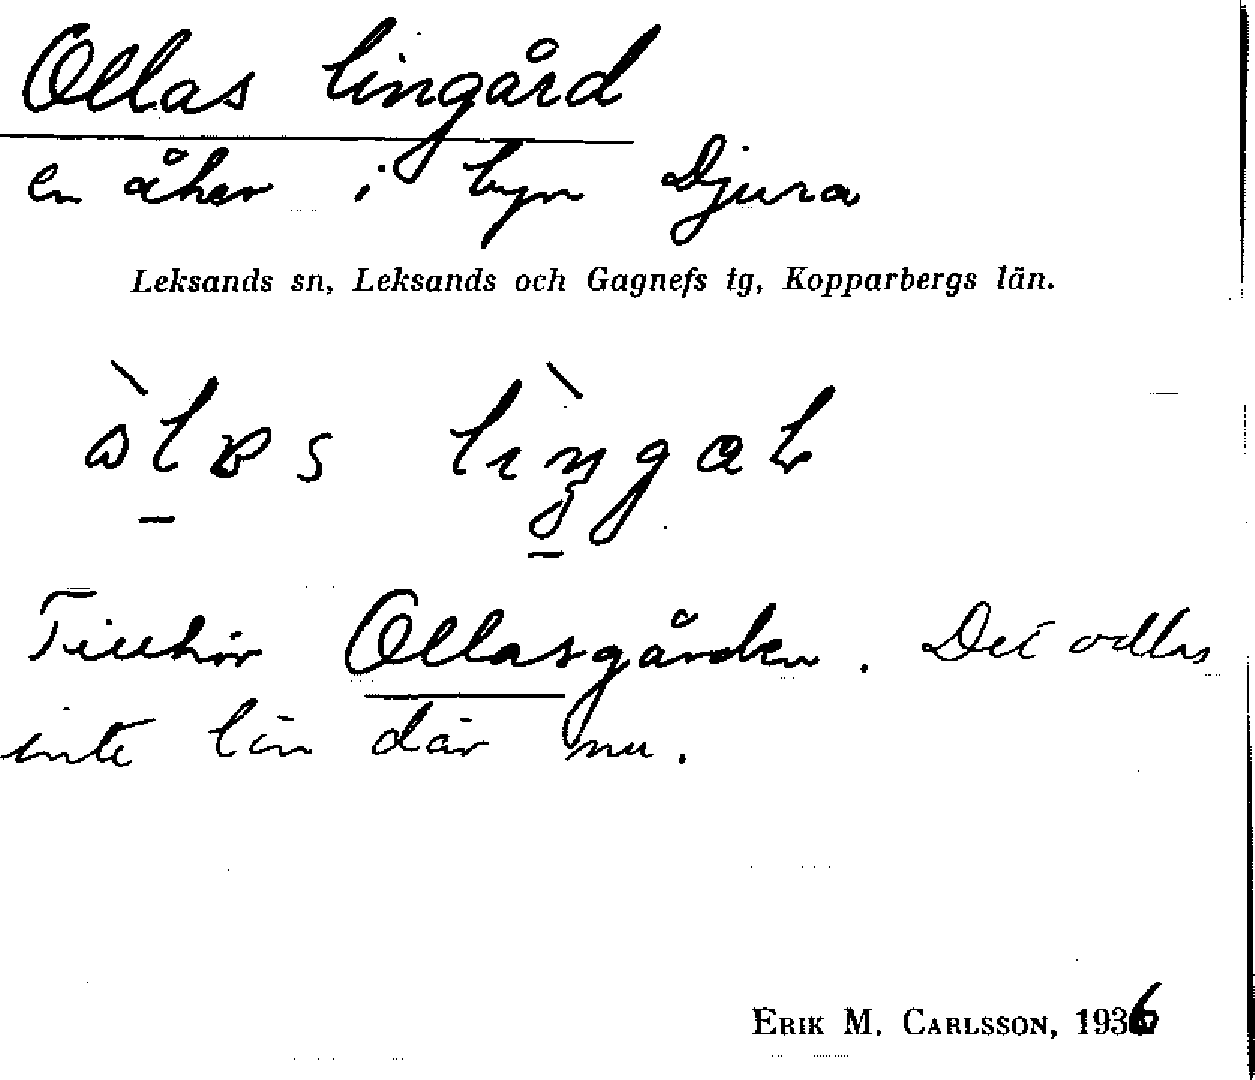 Ollas lingård
en åker i byn Djura
Leksands sn, Leksands och Gagnefs tg, Kopparbergs län.
Tillhör Ollasgården. Det odlas
inte lin där nu.
ERIK M. CARLSSON, 1936